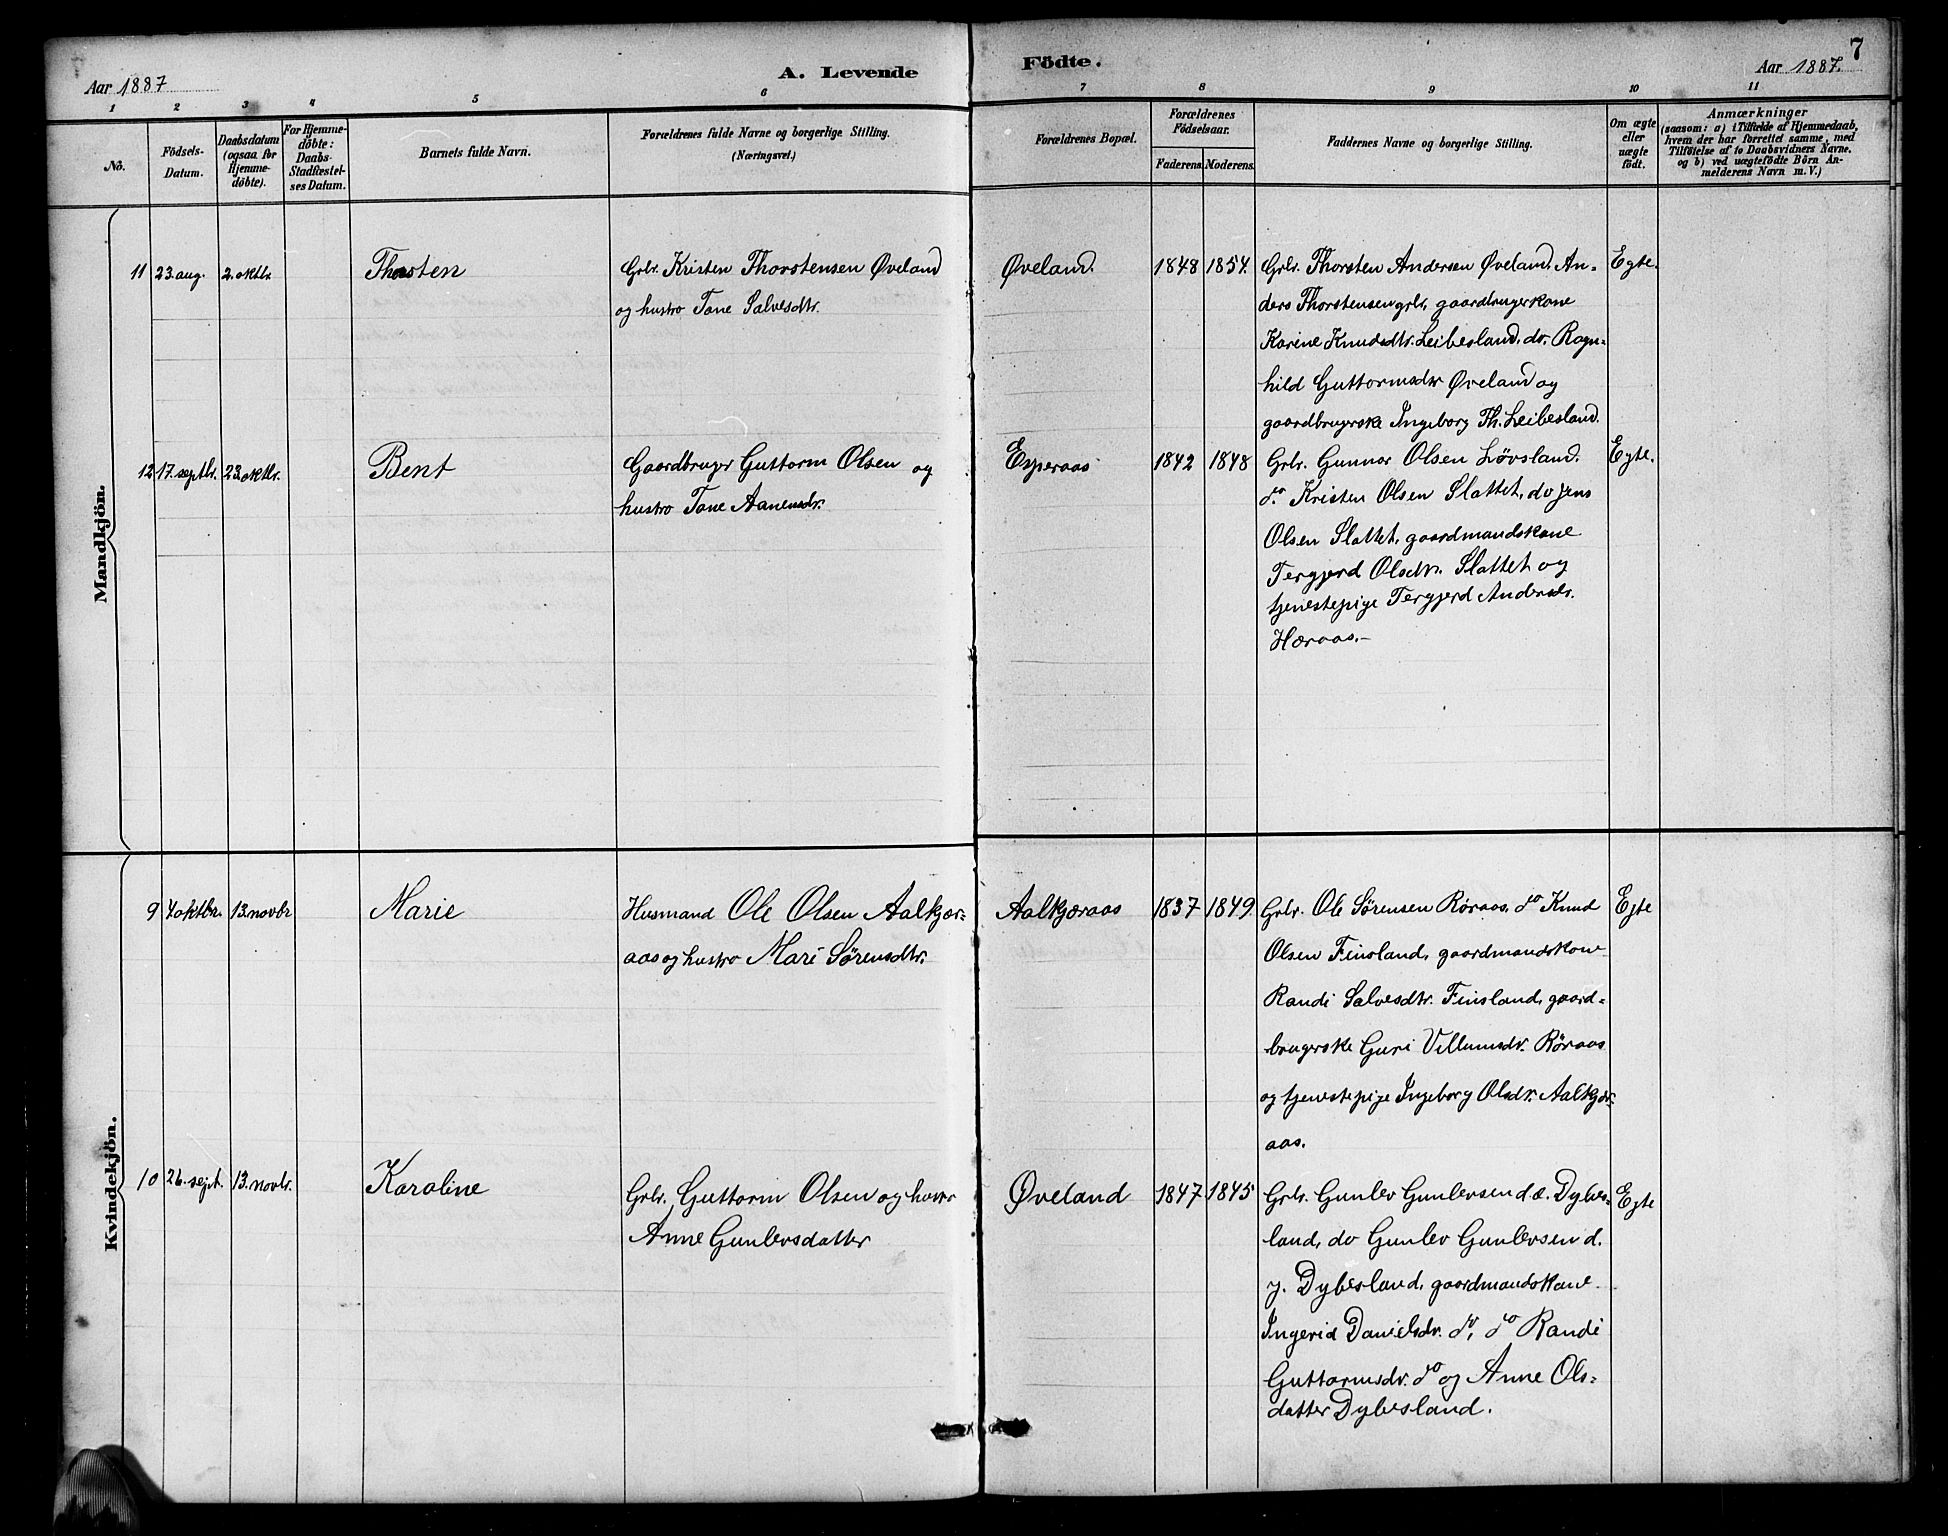 7
Aar 1887
A. Levende
Födte.
Aar 1887.
1 2 3 4 5 6 7 8 9 10 11
No.
Födsels-
Datum.
Daabsdatum
(ogsaa for
Hjemme-
döbte).
For Hjemme-
döbte:
Daabs-
Stadfæstel-
ses Datum.
Barnets fulde Navn.
Forældrenes fulde Navne og borgerlige Stilling.
(Næringsvei.)
Forældrenes Bopæl.
Forældrenes
Födselsaar.
Faderens. Moderens.
Faddernes Navne og borgerlige Stilling.
Om ægte
eller
uægte
födt.
Anmærkninger
(saasom: a) i Tilfælde af Hjemmedaab,
hvem der har forrettet samme, med
Tilföielse af to Daabsvidners Navne,
og b) ved uægtefödte Börn An-
melderens Navn m. V.)
Mandkjön.
11 23. aug. 2. oktbr. Thorsten
Grbr. Kristen Thorstensen Øveland
og hustro Tone Salvesdtr.
Øveland. 1848 1854.
Grbr. Thorsten Andersen Øveland. An-
ders Thorstensen grbr, gaardbrugerkone
Karine Knudsdtr. Leibesland, do. Ragn-
hild Guttormsdtr Øveland og
gaardbrugerske Ingeborg Th. Leibesland.
Egte.
12 17. septbr. 23. oktbr. Bent
Gaardbruger Guttorm Olsen og
hustro Tone Aanensdr.
Esperaas 1842 1848
Grbr. Gunnar Olsen Løvsland.
do. Kristen Olsen Slattet, do Jens
Olsen Slattet, gaardmandskone
Tergjerd Olsdtr. Slattet og
tjenestepige Tergjerd Andersdr.
Høraas.-
Egte.
Kvindekjön.
9 4 oktbr. 13. novbr Marie
Husmand Ole Olsen Aalkjær-
aas og hustro Mari Sørensdtr.
Aalkjæraas 1837 1849.
Grbr. Ole Sørensen Røraas, do Knud
Olsen Finsland, gaardmandskone
Randi Salvesdtr. Finsland, gaard-
brugerske Guri Villumsdr. Røraas
og tjenestepige Ingeborg Olsdr. Aalkjær-
aas.
Egte
10 26. sept. 13. novbr. Karoline
Grbr. Guttorm Olsen og hustro
Anne Gunlevsdatter
Øveland 1847 1845
Grbr. Gunlev Gunlevsen d.æ. Dybes-
land, do Gunlev Gunlevsen d.
y. Dybesland, gaardmandskone
Ingerid Danielsdr. do, do Randi
Guttormsdr. do og Anne Ols-
datter Dybesland.
Egte